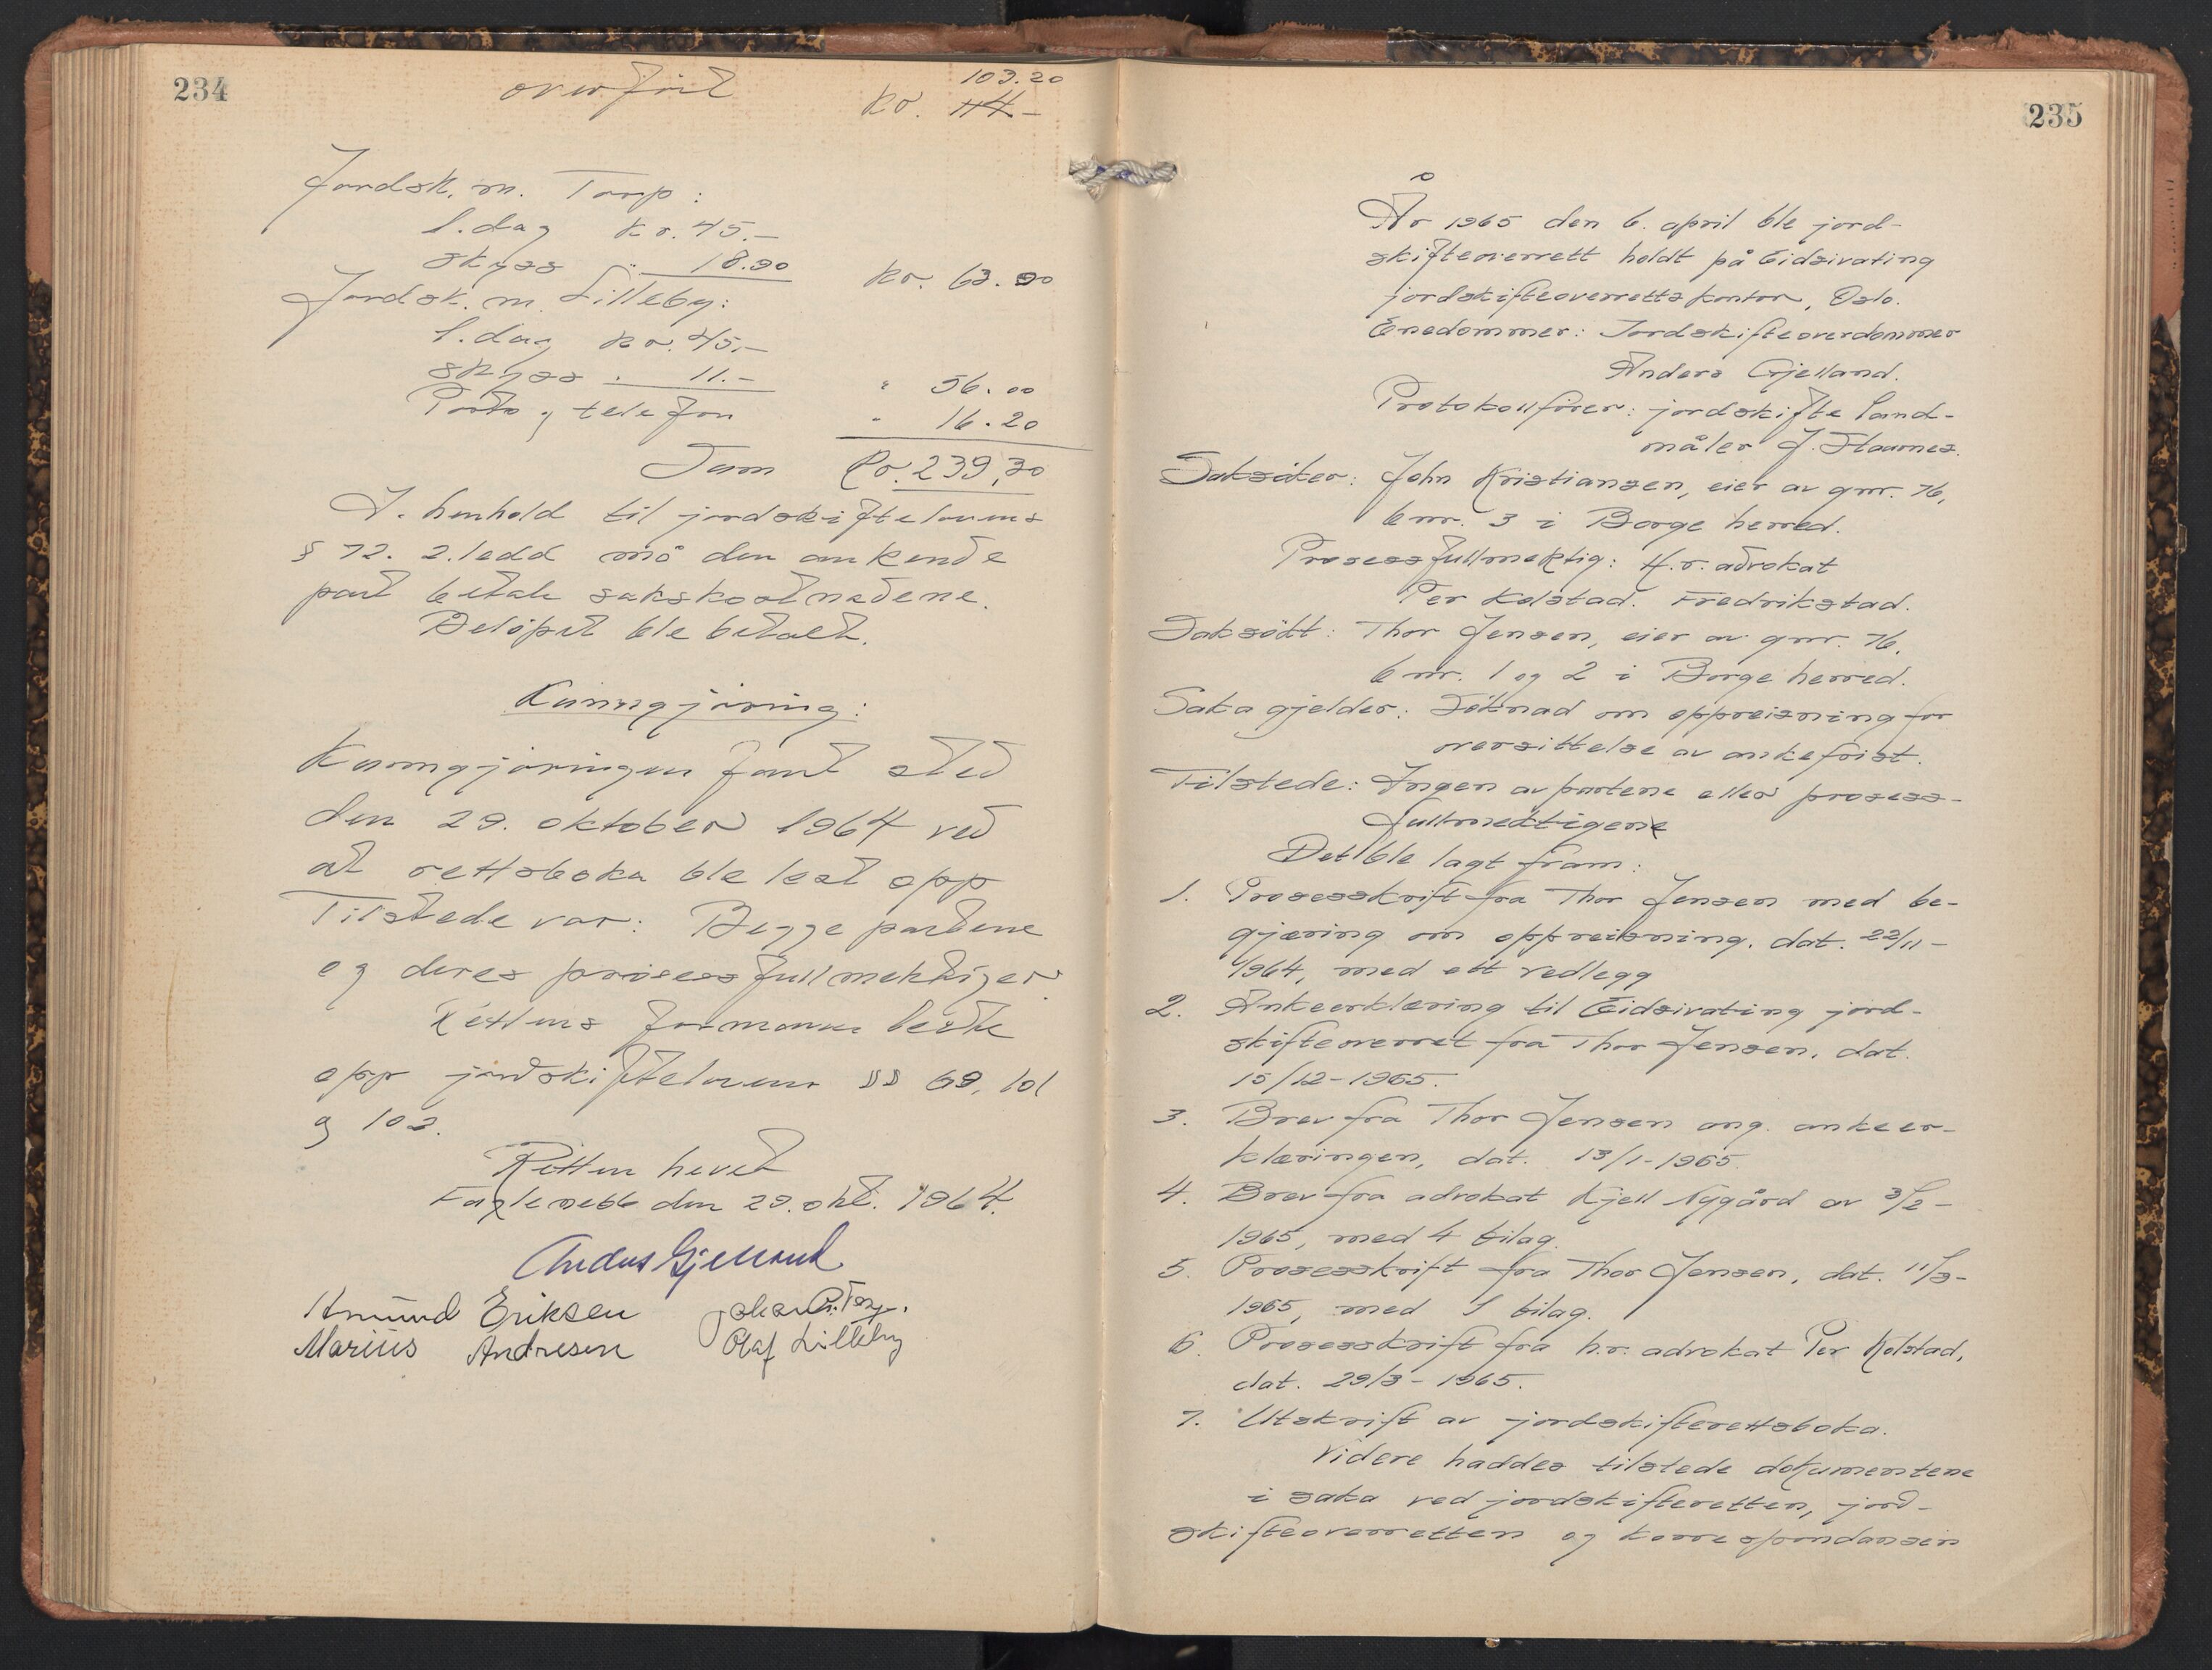 234
overført
103.20
kr. 44.-
Jordsk. m. Torp:
1. dag kr. 45.-
skyss " 18.90
kr. 63.90
Jordsk. m. Lilleby:
1. dag kr. 45.-
skyss " 11.-
" 56.00
Porto og telefon
" 16.20
Sum kr. 239,30
I henhold til jordskiftelovens
§ 72. 2. ledd må den ankende
part betale sakskostnadene.
Beløpet ble betalt.
Kunngjøring:
Kunngjøringen fant sted
den 29. oktober 1964 ved
at rettsboka ble lest opp
Tilstede var: Begge partene
og deres prosessfullmektiger.
Rettens formann leste
opp jordskiftelovens §§ 69, 101
og 102.
Retten hevet
Fuglenebb den 29. okt. 1964.
Anders Gjelland
Amund Eriksen Johan Torp.
Marius Andresen Olaf Lilleby
235
År 1965 den 6. april ble jord-
skifteoverrett holdt på Eidsivating
jordskifteoverrettskontor, Oslo.
Enedommer: Jordskifteoverdommer
Anders Gjelland.
Protokollfører: jordskifteland-
måler J. Staurnes.
Saksøker: John Kristiansen, eier av gnr. 76,
bnr. 3 i Borge herred.
Prosessfullmektig: H.r. advokat
Per Kolstad. Fredrikstad.
Saksøkt: Thor Jensen, eier av gnr. 76.
bnr. 1 og 2 i Borge herred.
Saka gjelder: Søknad om oppreisning for
oversittelse av ankefrist.
Tilstede: Ingen av partene eller prosess-
fullmektigene
Det ble lagt fram:
1. Prosesskrift fra Thor Jensen med be-
gjæring om oppreisning. dat. 22/11-
1964, med ett vedlegg
2. Ankeerklæring til Eidsivating jord-
skifteoverret fra Thor Jensen, dat.
15/12-1965.
3. Brev fra Thor Jensen ang. ankeer-
klæringen, dat. 13/1-1965.
4. Brev fra advokat Kjell Nygård av 3/2-
1965, med 4 bilag.
5. Prosesskrift fra Thor Jensen, dat. 11/3-
1965, med 1 bilag.
6. Prosesskrift fra h.r. advokat Per Kolstad,
dat. 29/3-1965.
7. Utskrift av jordskifterettsboka.
Videre haddes tilstede dokumentene
i saka ved jordskifteretten, jord-
skifteoverretten og korrespondansen